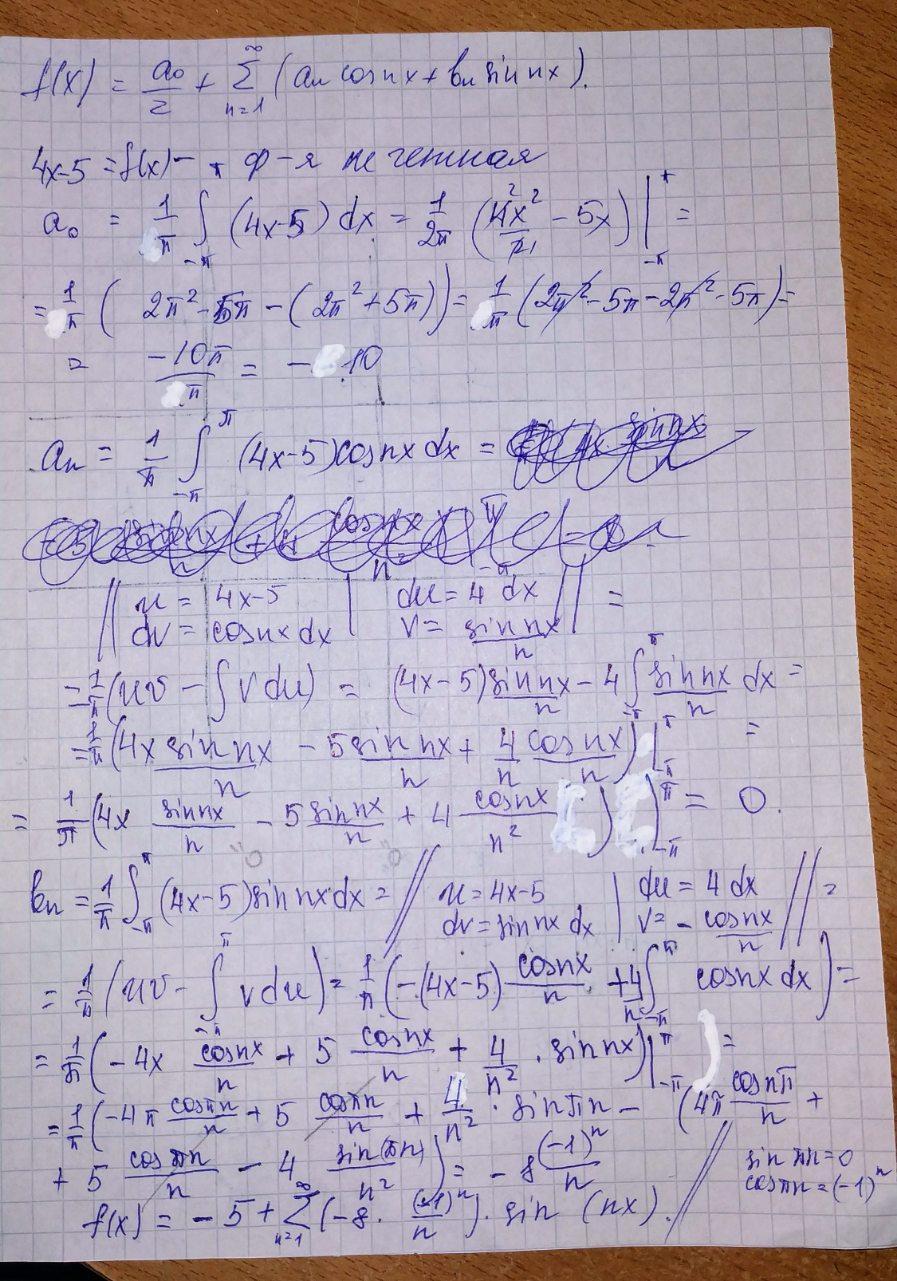 f(x) = a₀/2 + ∞Σn=1 (aₙ cos nx + bₙ sin nx).
4x-5 = f(x) - ф-я не четная
a₀ = 1/π ∫-π (4x-5) dx = 1/2π (4x²/2 - 5x) |-π =
= 1/π (2π² - 5π - (2π² + 5π)) = 1/π (2π² - 5π - 2π² - 5π) =
= -10π/π = -10
aₙ = 1/π ∫-π^π (4x-5) cos nx dx =
|| u = 4x-5 | du = 4 dx || =
dv = cos nx dx | v = sin nx/n
= 1/π (uv - ∫ v du) = (4x-5) sin nx/n - 4 ∫-π^π sin nx/n dx =
= 1/π (4x sin nx/n - 5 sin nx/n + 4/n cos nx/n) |-π^π =
= 1/π (4x sin nx/n - 5 sin nx/n + 4 cos nx/n²) |-π^π = 0.
bₙ = 1/π ∫-π^π (4x-5) sin nx dx = // u = 4x-5 | du = 4 dx // =
dv = sin nx dx | v = - cos nx/n
= 1/π (uv - ∫-π^π v du) = 1/π (-(4x-5) cos nx/n + 4/n ∫-π^π cos nx dx) =
= 1/π (-4x cos nx/n + 5 cos nx/n + 4/n² · sin nx) |-π^π =
= 1/π (-4π cos πn/n + 5 cos πn/n + 4/n² · sin πn - (4π cos nπ/n +
+ 5 cos πn/n - 4 sin(πn)/n²) = -8 (-1)ⁿ/n // sin πn = 0
cos πn = (-1)ⁿ
f(x) = -5 + ∞Σn=1 (-8 · (-1)ⁿ/n) · sin (nx).